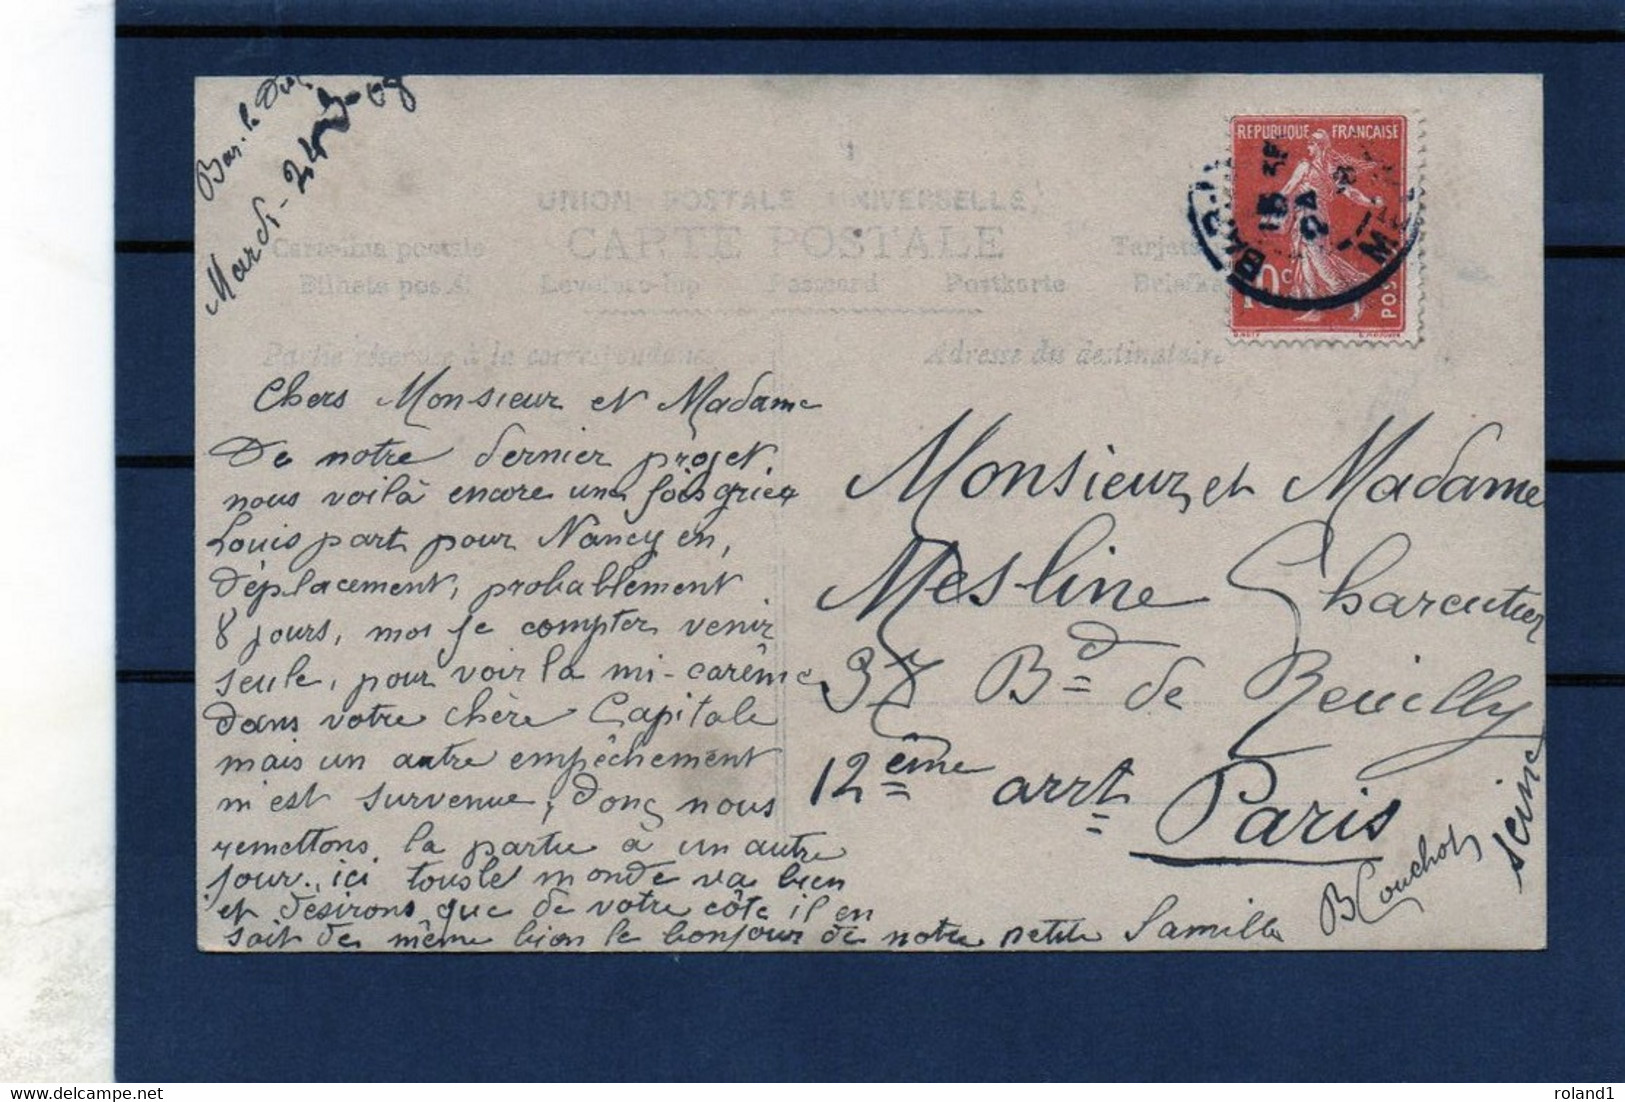 Bar-le-Duc
Mardi - 24
UNION POSTALE UNIVERSELLE
CARTE POSTALE
Cartolina postale
Tarjeta
Levelezo-lap
Postcard
Postkarte
Partie réservée à la correspondance
Adresse du destinataire
REPUBLIQUE FRANÇAISE
10 c
POSTES
BAR-LE
Chers Monsieur et Madame
De notre dernier projet
nous voilà encore une fois
Louis part pour Nancy en,
déplacement, probablement
8 jours, moi je compter venir
seule, pour voir la mi-carême
dans votre chère Capitale
mais un autre empêchement
m'est survenue, donc nous
remettons la partie à un autre
jour., ici tous le monde va bien
et désirons que de votre côte il en
soit de même bien le bonjour de notre petite famille
B Couchot
Monsieur et Madame
Mesline Charcutier
37 Bd de Reuilly
12ème arrt
Paris
Seine
roland1